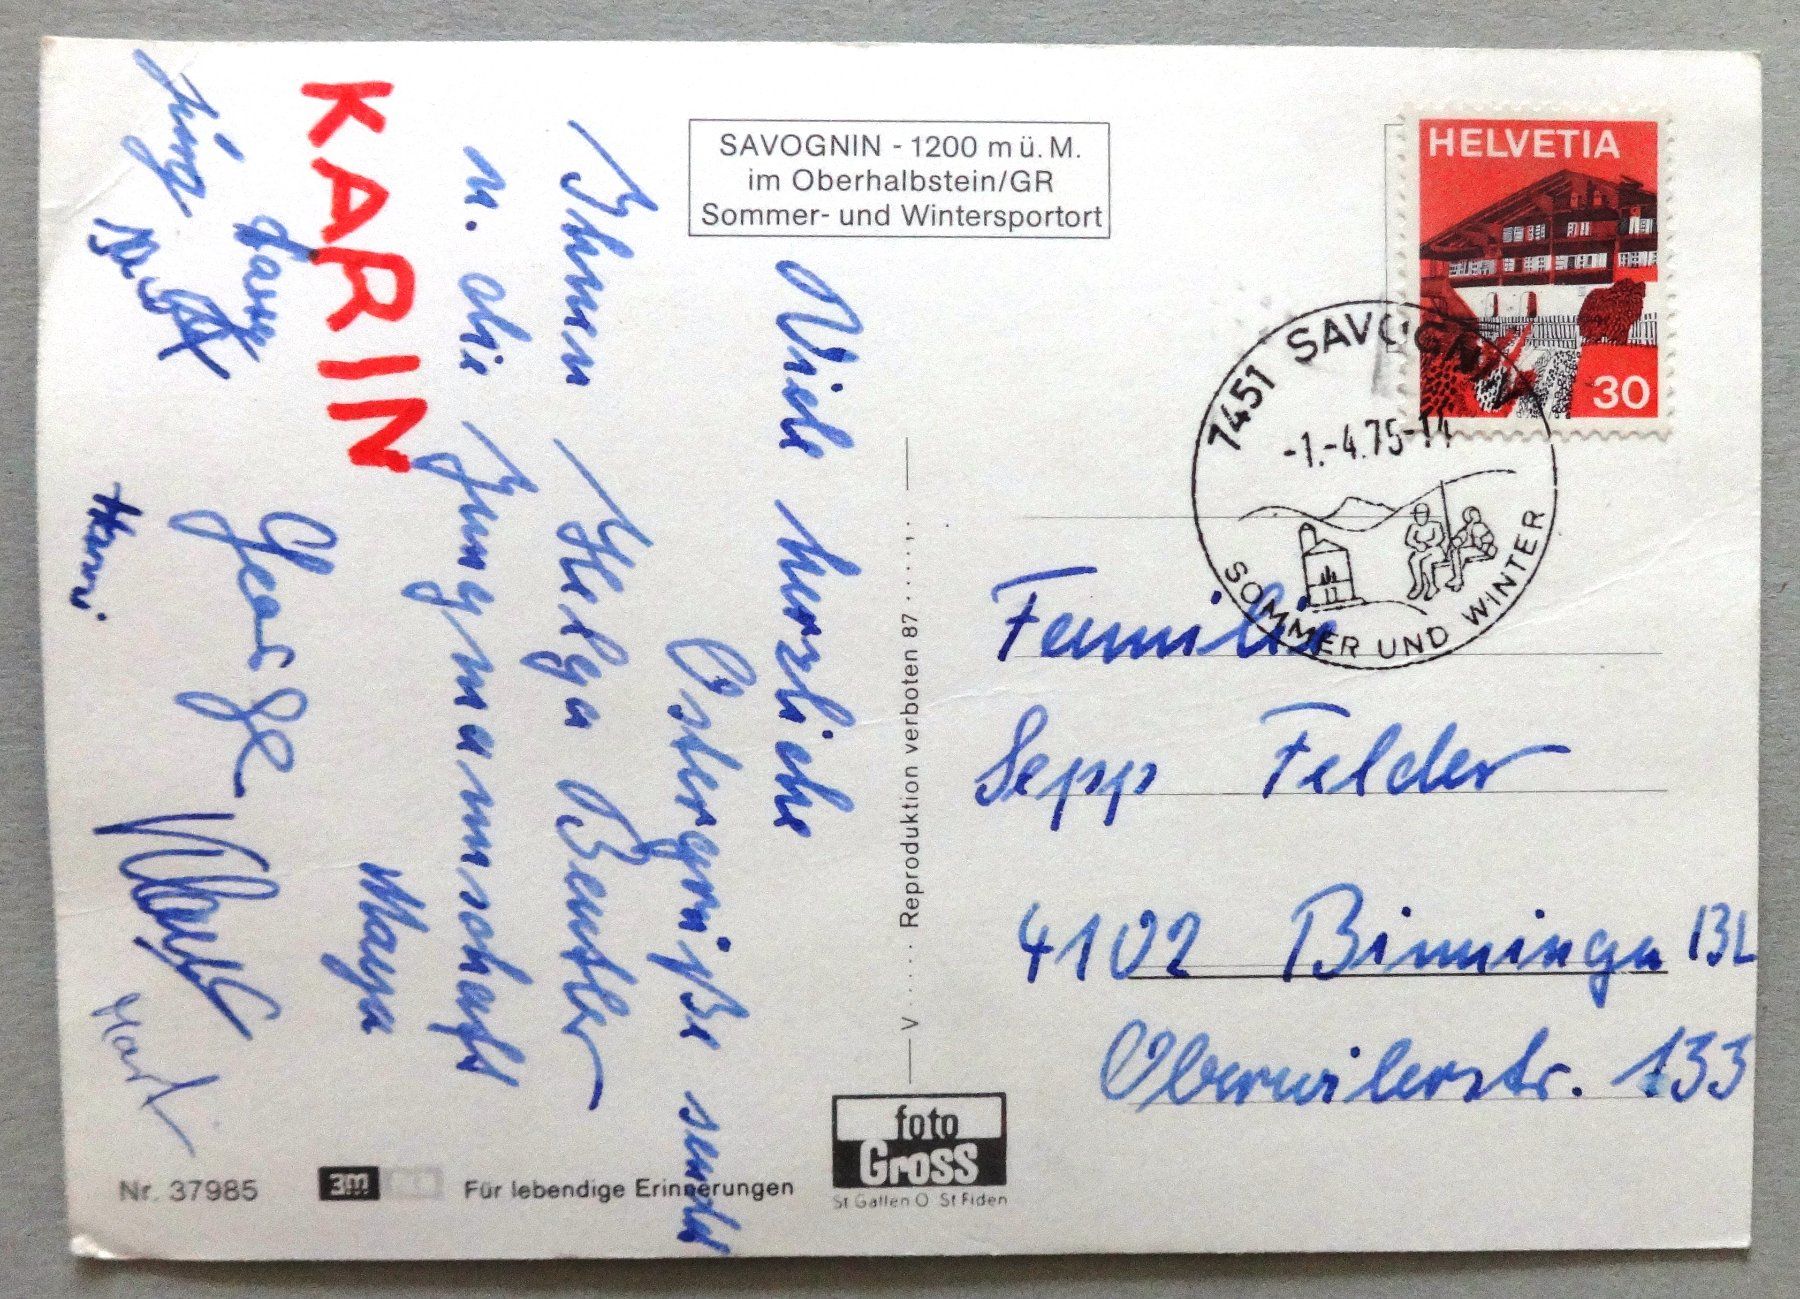 SAVOGNIN - 1200 m ü. M.
im Oberhalbstein/GR
Sommer- und Wintersportort
HELVETIA
30
7451 SAVOGNIN
-1.-4.75-14
SOMMER UND WINTER
Viele herzliche
Ostergrüße sendet
Ihnen Helga Beutler
u. die Jungmannschaft
Maya
KARIN
George
Hanni
Mark
Familie
Sepp Felder
4102 Binningen BL
Oberwilerstr. 133
V..... Reproduktion verboten 87.....
Nr. 37985
3M
Für lebendige Erinnerungen
foto
Gross
St Gallen O St Fiden